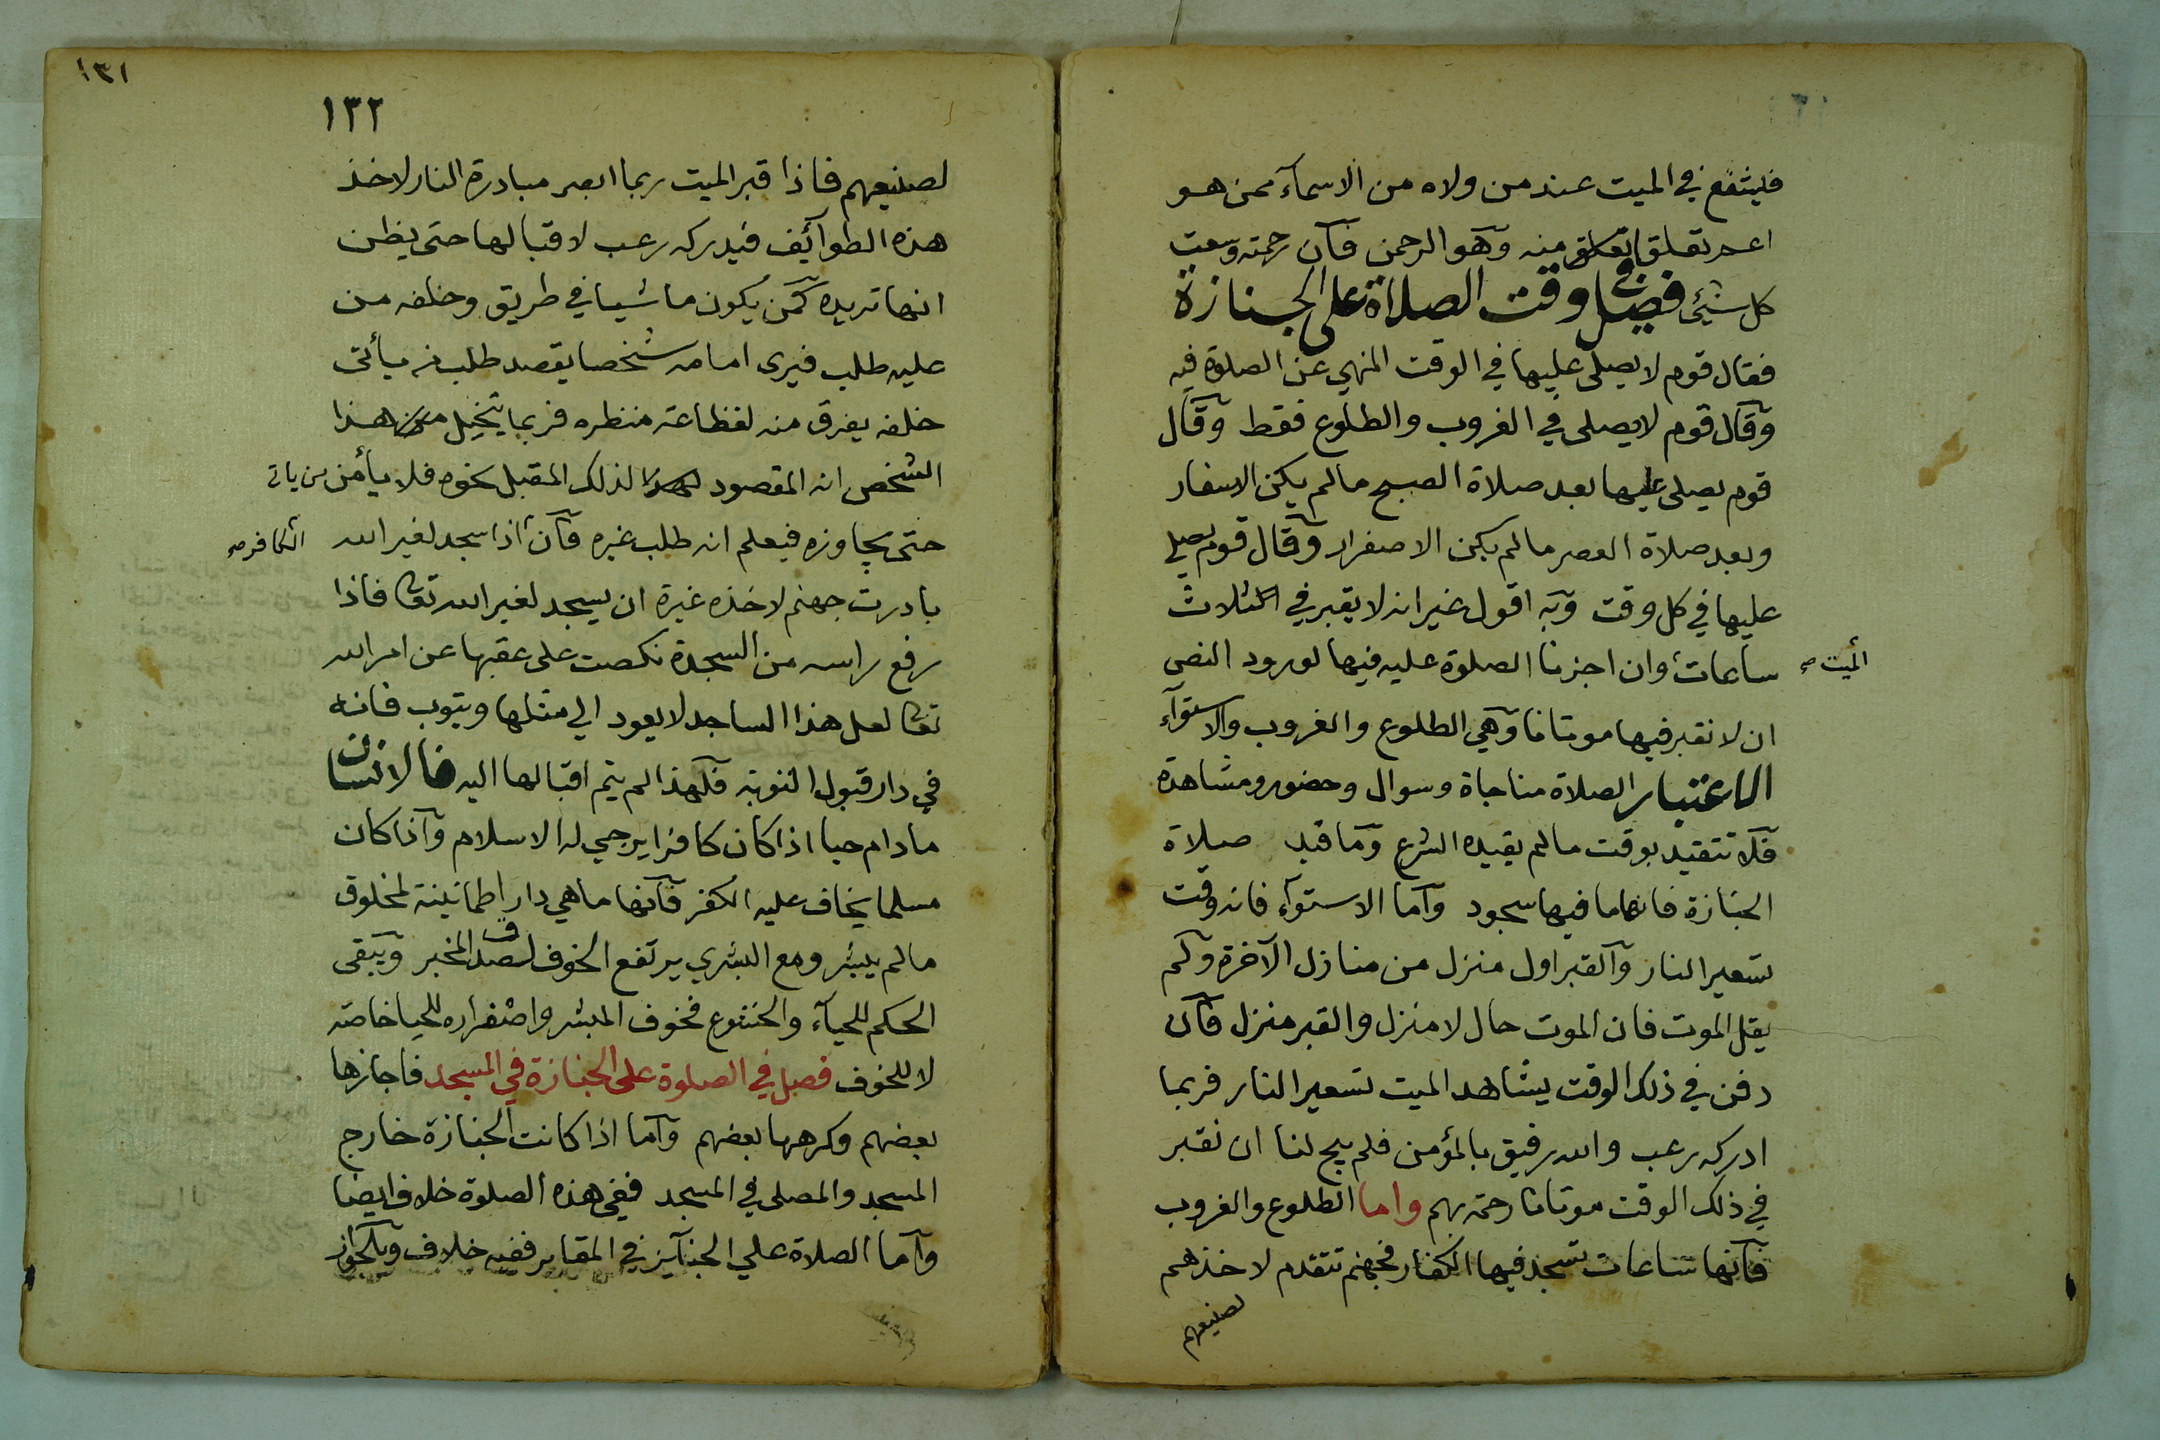 فليشفع في الميت عند من ولاه من الاسمآء ممن هو
اعم تعلقا منه وهو الرحمن فان رحمته وسعت
كل شيئ فصل في وقت الصلاة على الجنازة
فقال قوم لا يصلى عليها في الوقت المنهي عن الصلوة فيه
وقال قوم لا يصلى في الغروب والطلوع فقط وقال
قوم يصلى عليها بعد صلاة الصبح مالم يكن الاسفار
وبعد صلاة العصر مالم يكن الاصفرار وقال قوم يصلي
عليها في كل وقت وبه اقول غير انه لا يقبر في الثلاث
ساعات وان اجزنا الصلوة عليه فيها لورود النص
الميت صح
ان لا نقبر فيها موتانا وهي الطلوع والغروب والاستوآء
الاعتبار الصلاة مناجاة وسوال وحضور ومشاهدة
فلا تتقيد بوقت مالم يقيده الشرع وما قيد صلاة
الجنازة فانها ما فيها سجود وآما الاستوآء فانه وقت
تسعير النار والقبر اول منزل من منازل الآخرة ولم
يقل الموت فان الموت حال لا منزل والقبر منزل فان
دفن في ذلك الوقت يشاهد الميت تسعير النار فربما
ادركه رعب والله رفيق بالمؤمن فلم يبح لنا ان نقبر
في ذلك الوقت موتانا رحمة بهم واما الطلوع والغروب
فانها ساعات تسجد فيها الكفار فجهنم تتقدم لاخذهم
لصنيعهم
١٣١
١٣٢
لصنيعهم فاذا قبر الميت ربما ابصر مبادرة النار لاخذ
هذه الطوآئف فيدركه رعب لاقبالها حتى يظن
انها تريده كمن يكون ماشيا في طريق وخلفه من
عليه طلب فيرى امامه شخصا يقصد طلب من يأتى
خلفه يفرق منه لفظاعة منظره فربما يتخيل هذا
الشخص انه المقصود لذلك المقبل نحوه فلا يأمن من ياتي
حتى يجاوزه فيعلم انه طلب غيره فان اذا سجد لغير الله
الكافر صح
بادرت جهنم لاخذه غيرة ان يسجد لغير الله تعا فاذا
رفع راسه من السجدة نكصت على عقبها عن امر الله
تعا لعل هذا الساجد لا يعود الي مثلها ويتوب فانه
في دار قبول التوبة فلهذا لم يتم اقبالها اليه فالانسان
مادام حيا اذا كان كافرا يرجى له الاسلام وآذا كان
مسلما يخاف عليه الكفر فانها ما هي دار طمانينة لمخلوق
مالم يبشر ومع البشري يرتفع الخوف لصدق المخبر ويبقى
الحكم للحيآء والخشوع فخوف المبشر واصفراره للحيا خاصه
لا للخوف فصل في الصلوة على الجنازة في المسجد فاجازها
بعضهم وكرهها بعضهم وآما اذا كانت الجنازة خارج
المسجد والمصلى في المسجد ففي هذه الصلوة خلاف ايضا
وآما الصلاة علي الجنآيز في المقابر ففيه خلاف وبالجواز